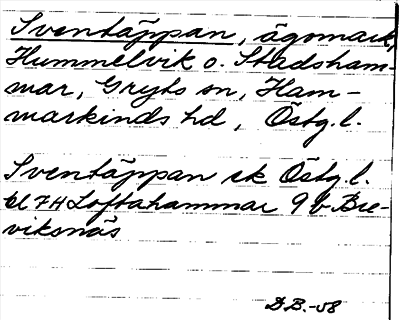 Sventäppan, ägomark,
Hummelvik o. Stadsham-
mar, Gryts sn, Ham-
markinds hd, Östg. l.
Sventäppan ek Östg. l.
bl 7H Loftahammar 9 b Bre-
viksnäs
D.B.-58